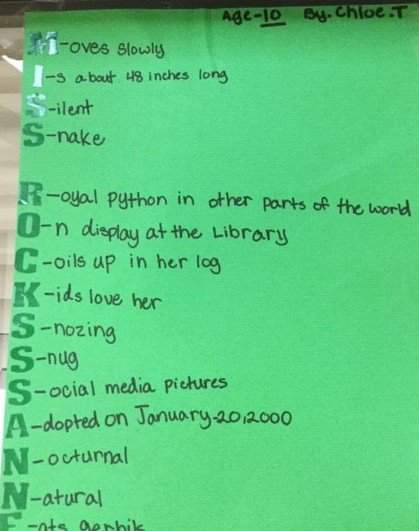 Age-10 By-Chloe.T
M-oves slowly
I-s about 48 inches long
S-ilent
S-nake
R-oyal python in other parts of the world
O-n display at the Library
C-oils up in her log
K-ids love her
S-nozing
S-nug
S-ocial media pictures
A-dopted on January-20,2000
N-octurnal
N-atural
E-ats gerbils